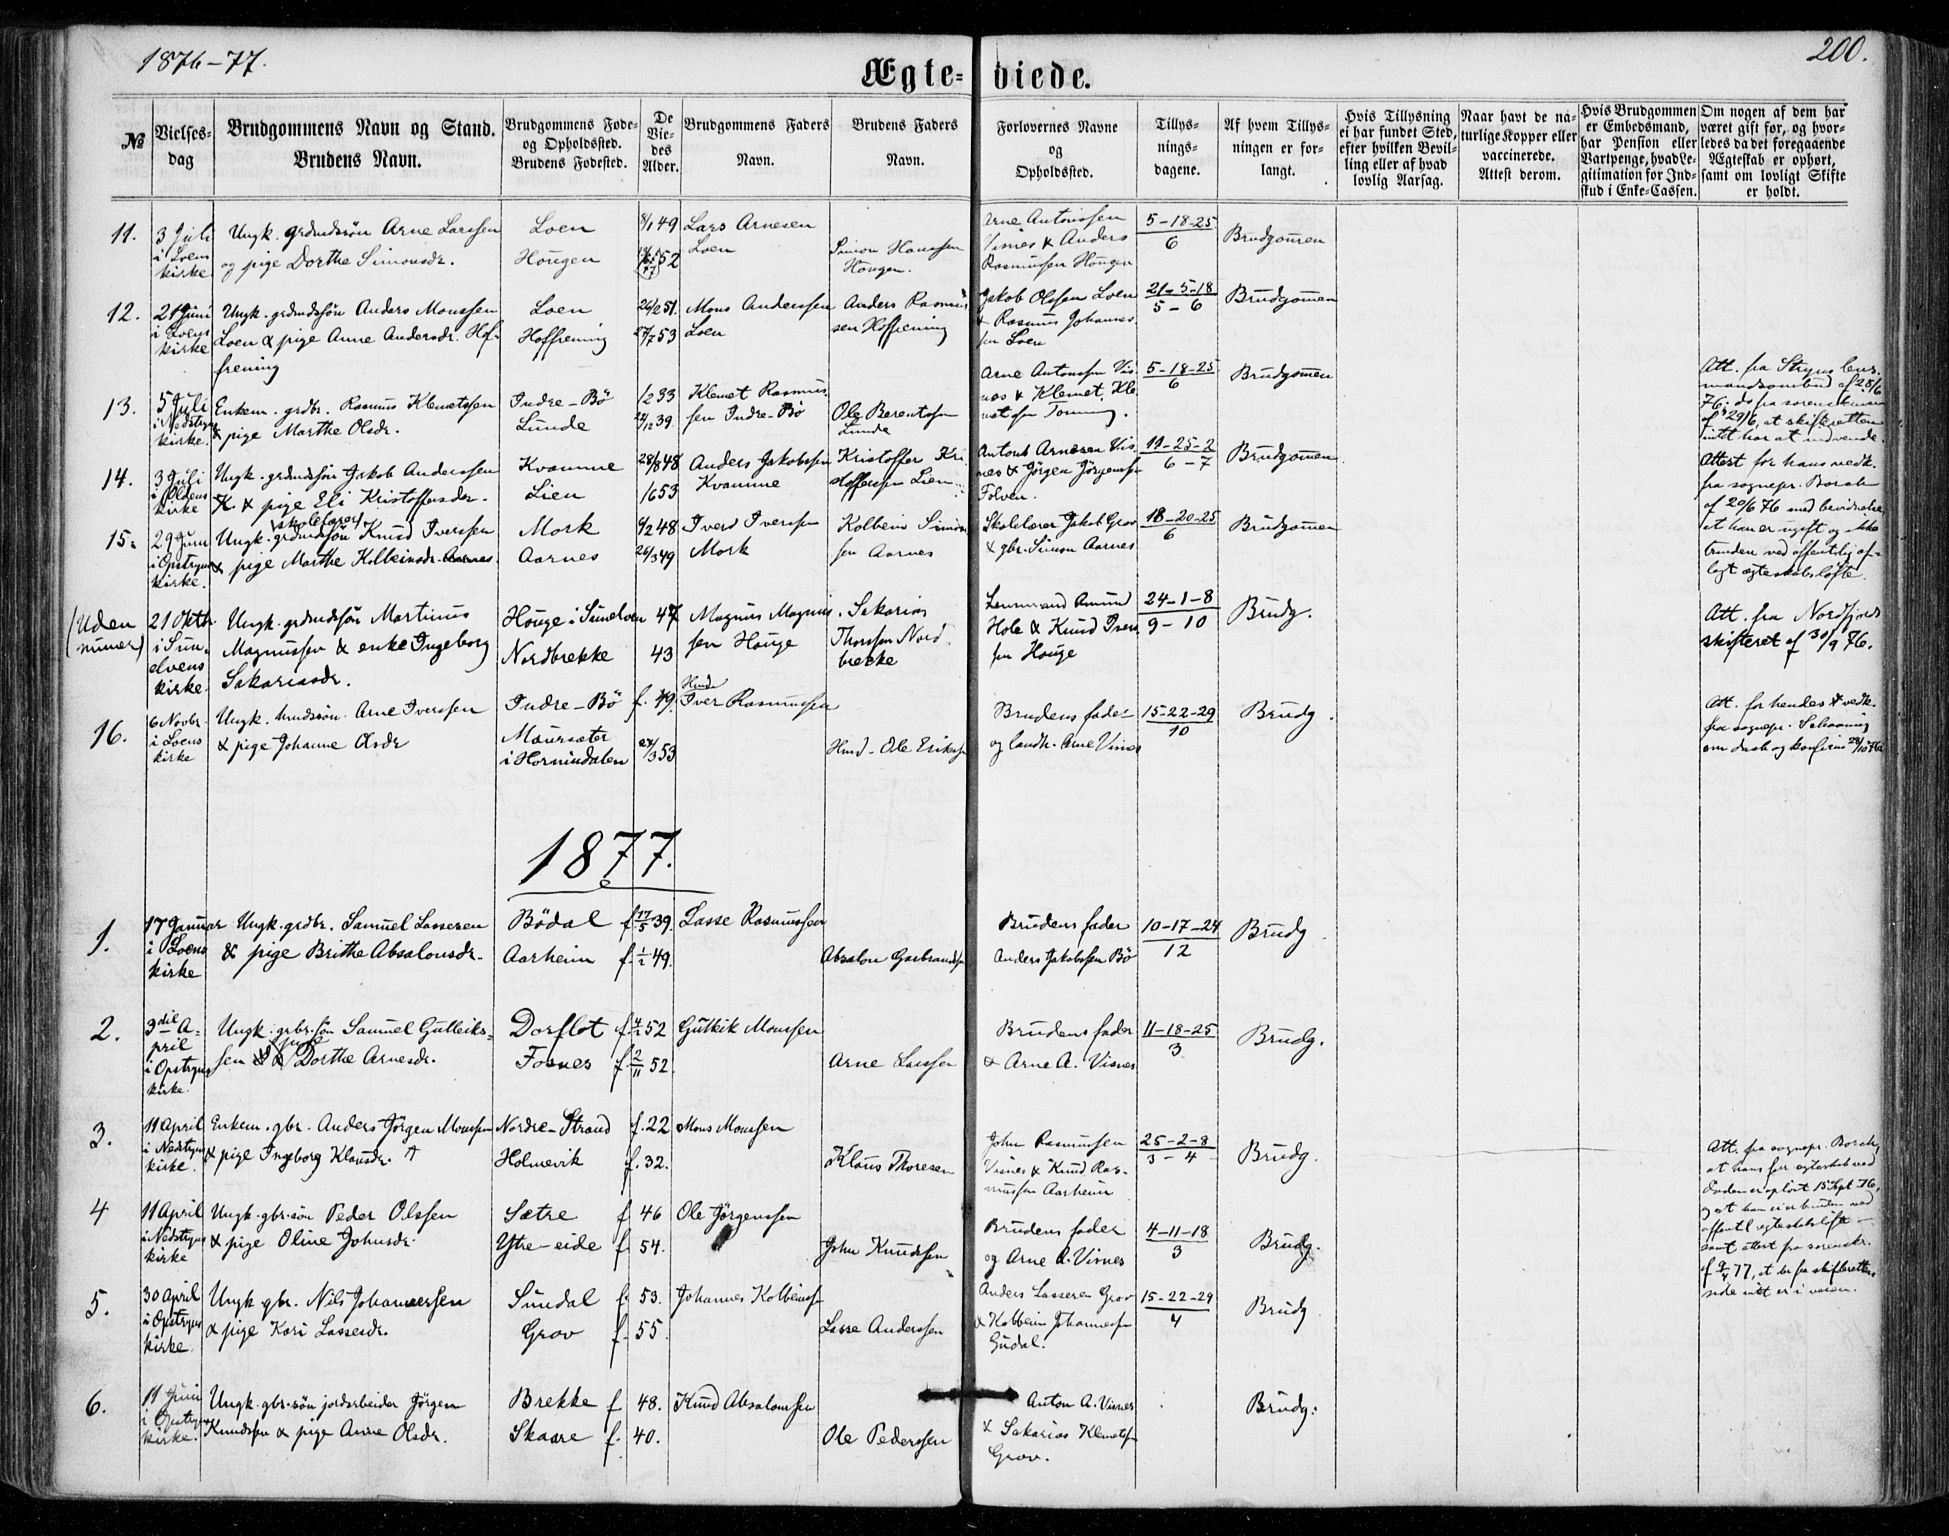 1876-77.
200.
Ægteviede.
№
Vielsesdag
Brudgommens Navn og Stand.
Brudens Navn.
Brudgommens Føde-
og Opholdssted.
Brudens Fødested.
De
Vie-
des
Alder.
Brudgommens Faders
Navn.
Brudens Faders
Navn.
Forlovernes Navne
og
Opholdssted.
Tillys-
nings-
dagene.
Af hvem Tillys-
ningen er for-
langt.
Hvis Tillysning
ei har fundet Sted,
efter hvilken Bevil-
ling eller af hvad
lovlig Aarsag.
Naar havt de na-
turlige Kopper eller
vaccinerede.
Attest derom.
Hvis Brudgommen
er Embedsmand,
har Pension eller
Vartpenge, hvad Le-
gitimation for Ind-
skud i Enke-Cassen.
Om nogen af dem har
været gift før, og hvor-
ledes da det foregaaende
Ægteskab er ophørt,
samt om lovligt Skifte
er holdt.
11.
3 Juli
i Loens
kirke
Ungk. grdmdssøn Arne Larssen
og pige Dorthe Simonsdr.
Loen
Hougen
8/1 49
52
Lars Arnesen
Loen
Simon Hanssen
Hougen.
Arne Antonissen
Visnes & Anders
Rasmussen Hougen
5-18-25
6
Brudgomen
12.
21 Juni
i Loens
kirke
Ungk. grdmdssøn Anders Monssen
Loen & pige Anne Andersdr. Hof-
frening
Loen
Hoffrening
26/2 51.
27/7 53
Mons Anderssen
Loen
Anders Rasmus
sen Hoffrening
Jakob Olssen Loen
& Rasmus Johannes
sen Loen
21-5-18
5-6
Brudgomen
13.
5 Juli
i Nedstryns
kirke.
Enkem. grdbr. Rasmus Klemetssen
& pige Marthe Olsdr.
Indre-Bö
Lunde
1233
21/12 39.
Klemet Rasmus
sen Indre-Bö
Ole Berentssen
Lunde
Arne Antonssen Vis
nes & Klemet Kle
metssen Tonning.
5-18-25
6
Brudgomen
Att. fra Stryns lens
mandsombud af 28/6
76; do fra sorenskriveren
af 29/6, at skifteretten
intet har at indvende.
14.
3 Juli
i Oldens
kirke
Ungk. grdmdssøn Jakob Anderssen
K. & pige Eli Kristoffersdr.
Kvamme
Lien
28/8 48
1653
Anders Jakobssen
Kvamme
Kristoffer Kri
stofferssen Lien
Antons Arnesen Vis
nes & Jörgen Jörgenssen
Folven.
11-25-2
6-7
Brudgomen.
Attest for hans vedk.
fra sognepr. Barch
af 20/6 76 med bevidnelse
at han er ugift og ikke
bunden ved offentlig af-
lagt ægteskabslöfte.
15.
29 Juni
i Opstryns
kirke.
skolelærer
Ungk. grdmdssøn Knud Iverssen
& pige Marthe Kolbeinsdr. Aarnes.
Mork
Aarnes
9/2 48
26/3 49
Iverd Iverssen
Mork
Kolbein Simon
sen Aarnes
Skolelærer Jakob Grov
& gbr. Simon Aarnes
18-20-25
6
Brudgomen
(Uden
numer)
21 Oktbr.
i Sun-
elvens
kirke.
Ungk. grdmdssøn Martinus
Magnussen & enke Ingeborg
Sakariasdr.
Houge i Sunelven
Nordbrekke
47
43
Magnus Magnus
sen Houge
Sakarias
Thorssen Nord
brekke
Lensmand Amund
Hole & Knud Iver
sen Houge
24-1-8
9-10
Brudg.
Att. fra Nordfjords
skifteret af 30/9 76.
16.
6 Novbr.
i Loens
kirke
Ungk. hmdssøn. Arne Iverssen
& pige Johanne Olsdr
Indre-Bö
Maursæter
i Hornindalen
f. 49.
27/3 53
Hmd.
Iver Rasmussen
Hmd. Ole Erikssen
Brudens fader
og landh. Arne Visnes
15-22-29
10
Brudg.
Att. for hendes vedk.
fra sognepr. Schaaning
om daab og konfirm 28/10 76
1877.
1.
17 Januar
i Loens
kirke
Ungk. grdbr. Samuel Lassesen
& pige Brithe Absalonsdr.
Bödal
Aarheim
f. 17/5 39.
f. 1/2 49.
Lasse Rasmussen
Absalon Gabrandssen
Brudens fader
Anders Jakobssen Bö
10-17-24
12
Brudg.
2.
3die A-
pril
i Opstryns
kirke.
Ungk. grbr. søn Samuel Gutleiks-
sen & pige Dorthe Arnesdr.
Dorflot
Fosnes
f. 4/2 52
f. 2/11 52.
Gutleik Monssen
Arne Larssen
Brudens fader
& Arne A. Visnes
11-18-25
3.
Brudg.
3.
11 April
i Nedstryns
kirke.
Enkem. gbr. Anders Jörgen Monssen
& pige Ingeborg Klausdr.
Nordre-Strand
Holmevik
f. 22
f. 32.
Mons Monssen
Klaus Thoresen
John Rasmussen
Visnes & Knud Ras-
mussen Aarheim
25-2-8
3-4
Brudg.
Att. fra sognepr. Barch,
at hans før egteskab ved
döden er opløst 15 Sept 76,
og at han ei er bunden ved
offentl egteskabslöfte –
samt attest fra sorenskr.
af 9/4 77, at der fra skifterettens
side intet er i veien.
4
11 April
i Nedstryns
kirke
Ungk. gbr. søn Peder Olssen
& pige Oline Johnsdr.
Sætre
Ytre-eide
f. 46
f. 54.
Ole Jörgenssen
John Knudssen
Brudens fader
og Arne A. Visnes
4-11-18
3
Brudg.
5.
30 April
i Opstryns
kirke.
Ungk. gbr. Nils Johannessen
& pige Kari Lassesdr.
Sundal
Grov
f. 53.
f. 55.
Johannes Kolbeinssen
Lasse Anderssen
Anders Lassesen Grov
& Kolbein Johannessen
Sudal.
15-22-29
4
Brudg.
6.
11 Juni
i Opstryns
kirke.
Ungk. gbr. søn jordarbeider Jörgen
Knudssen & pige Anne Olsdr.
Brekke
Skaare
f. 48.
f. 40.
Knud Absalonssen
Ole Pederssen
Anton A. Visnes
& Sakarias Klemetssen
Grov.
Brudg.